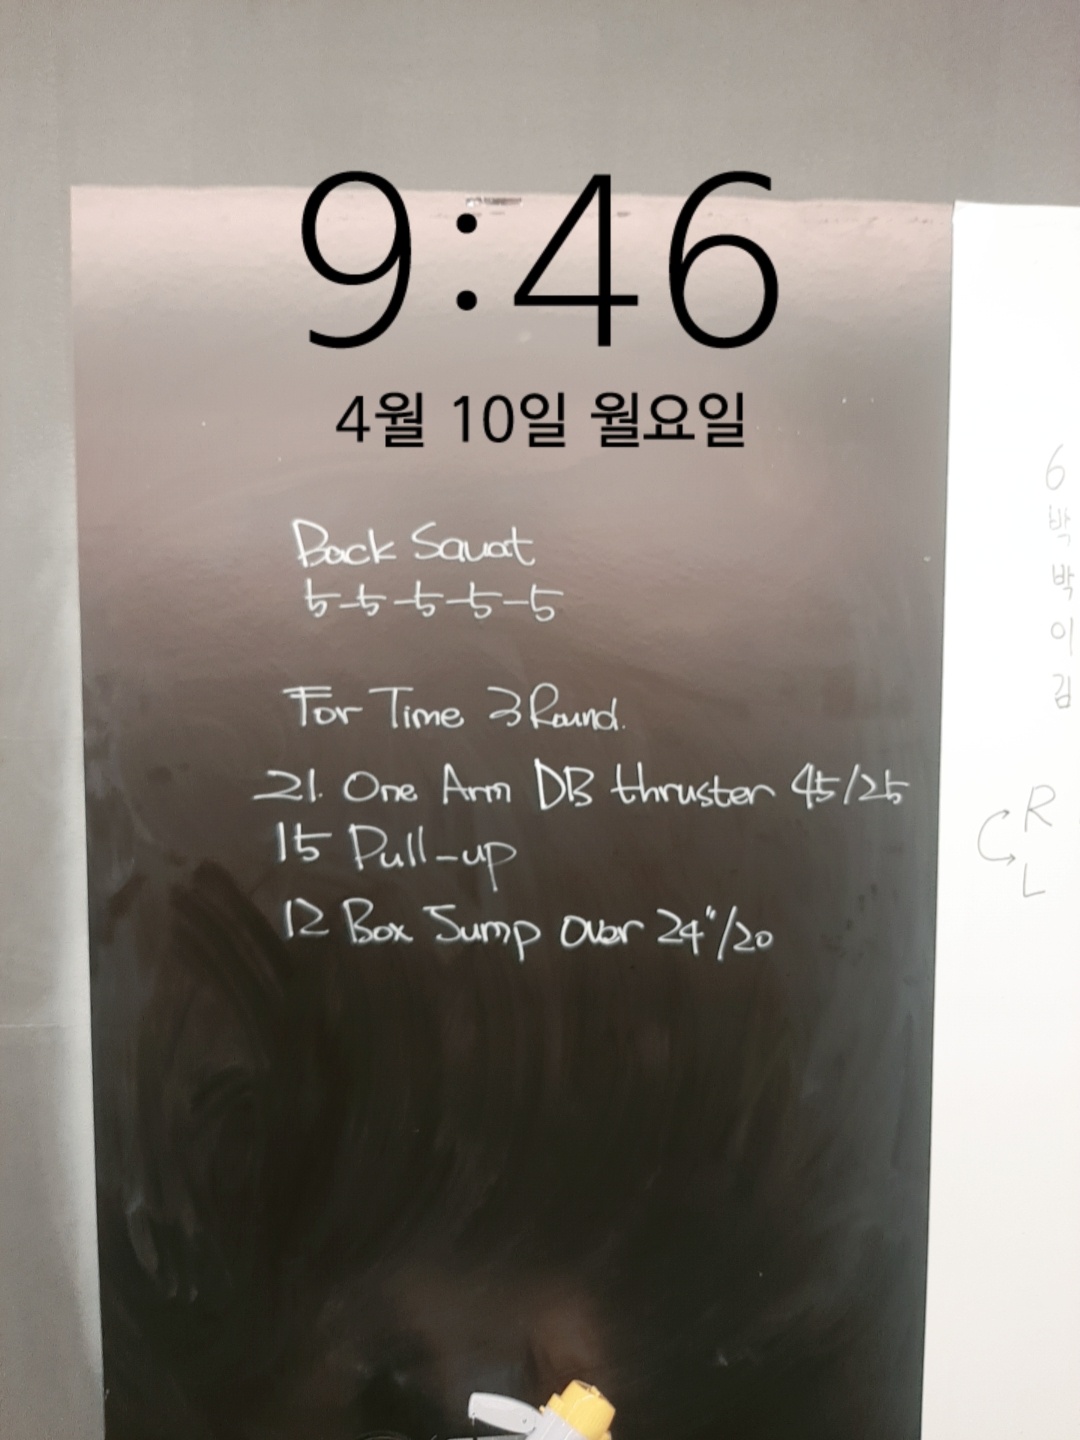 9:46
4월 10일 월요일
Back Squat
5-5-5-5-5
For Time 3 Round.
21. One Arm DB thruster 45/25
15 Pull-up
12 Box Jump Over 24"/20
6
박
박
이
김
R
L